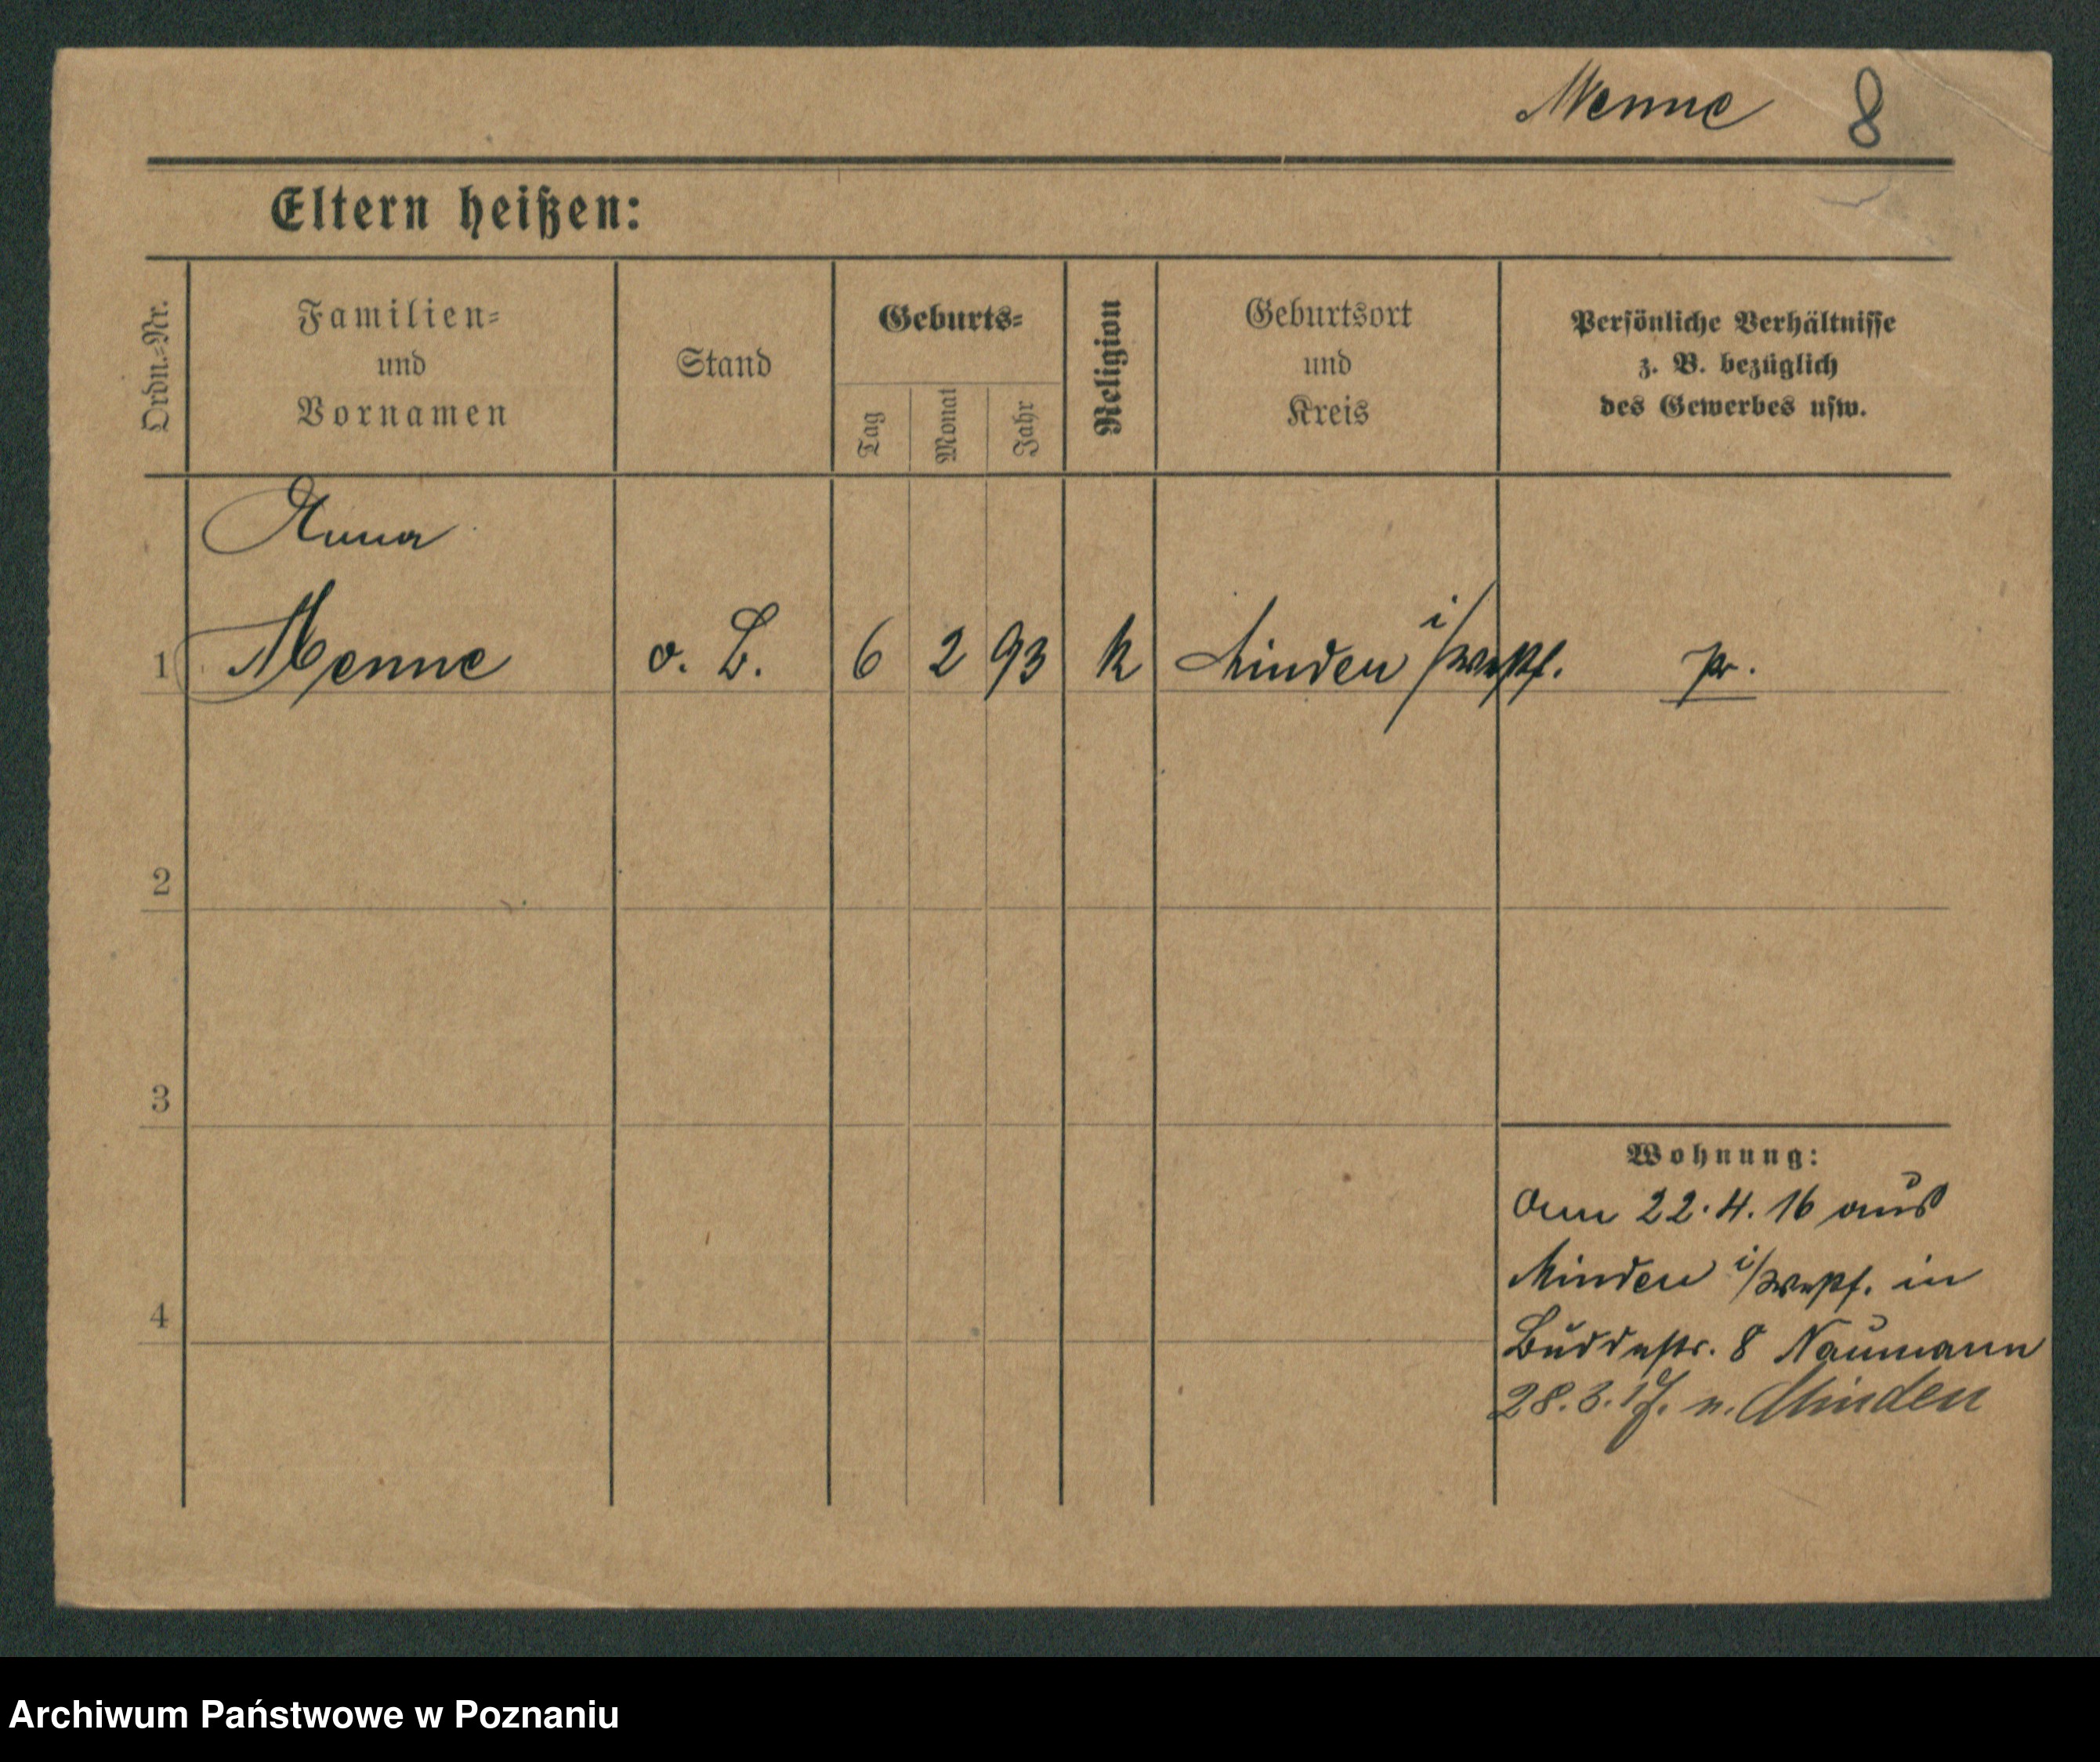 Menne 8
Eltern heißen:
Ordn.-Nr.
Familien-
und
Vornamen
Stand
Geburts-
Tag
Monat
Jahr
Religion
Geburtsort
und
Kreis
Persönliche Verhältnisse
z. B. bezüglich
des Gewerbes usw.
Anna
1 Menne o. B. 6 2 93 k Minden i/Westf. pr.
2
3
4
Wohnung:
Am 22. 4. 16 aus
Minden i/Westf. in
Buddestr. 8 Naumann
28. 3. 17. n. Minden
Archiwum Państwowe w Poznaniu